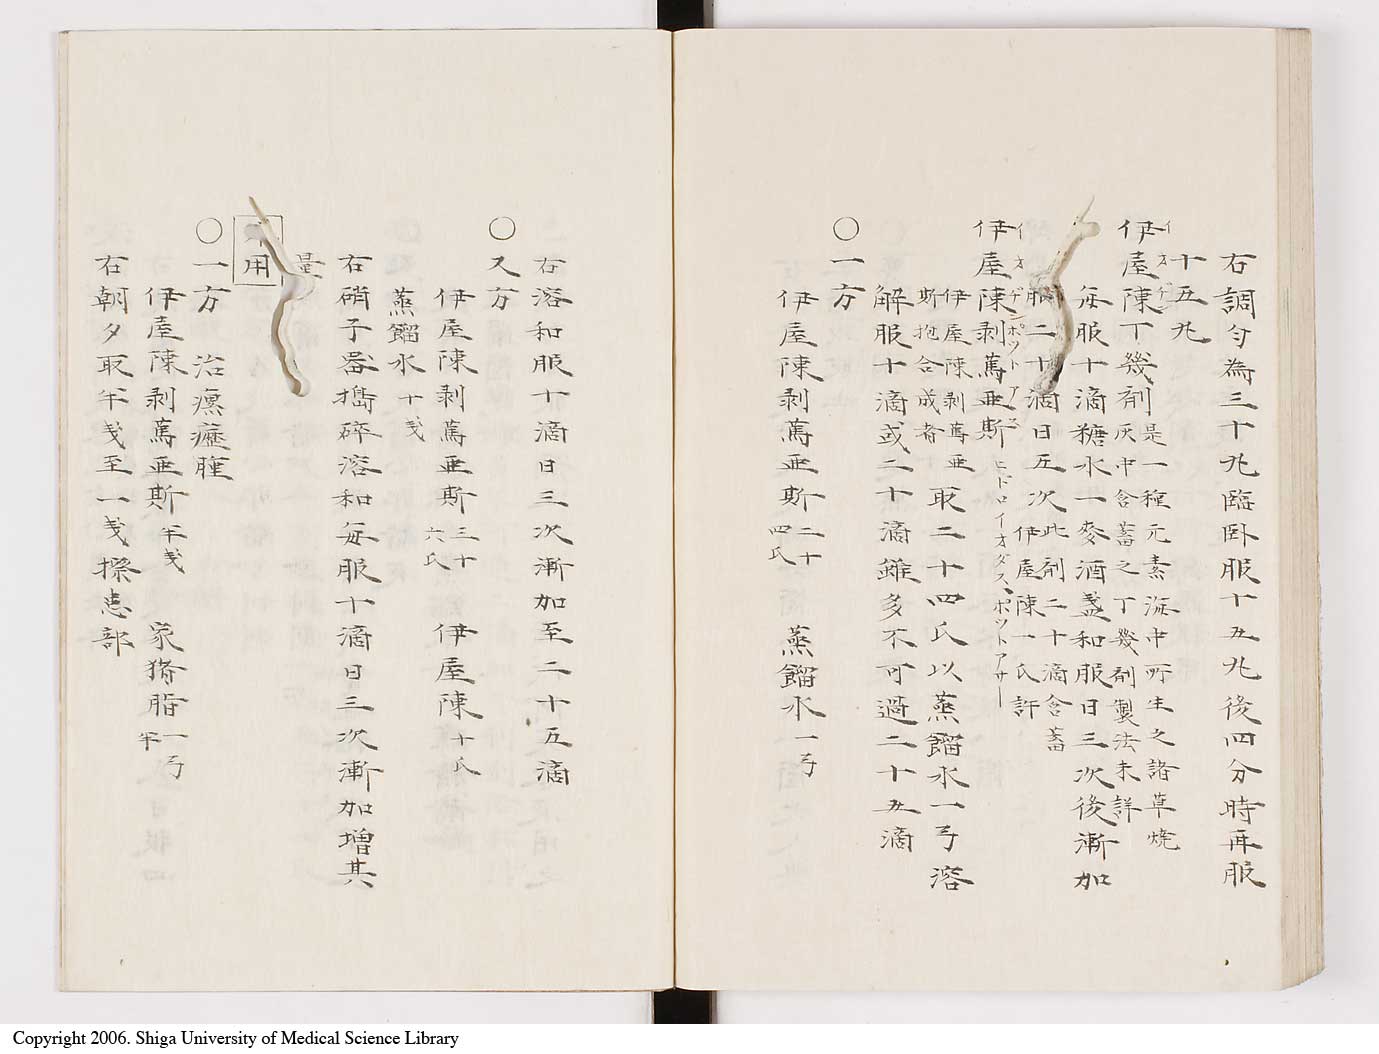 右調勻為三十丸臨卧服十五丸後四分時再服
十五丸
伊屋陳丁幾剤 是一種元素海中所生之諸草焼
灰中含蓄之丁幾剤製法未詳
イオヂン
毎服十滴糖水一麥酒盞和服日三次後漸加
服二十滴日五次 此剤二十滴含蓄
伊屋陳一氏許
伊屋陳剥蔦亜斯 ヒドロイオダス、ポットアサー
イオヂンポットアス
伊屋陳剥蔦亜
斯抱合成者 取二十四氏以蒸餾水一弓溶
解服十滴或二十滴雖多不可過二十五滴
〇一方
伊屋陳剥蔦亜斯 二十四氏 蒸餾水一弓
右溶和服十滴日三次漸加至二十五滴
〇又方
伊屋陳剥蔦亜斯 三十六氏 伊屋陳 十氏
蒸餾水 十戔
右硝子器擣碎溶和毎服十滴日三次漸加增其
量
用
〇一方 治瘰癧腫
伊屋陳剥蔦亜斯 半戔 家猪脂 一弓半
右朝夕取半戔至一戔擦患部
Copyright 2006. Shiga University of Medical Science Library